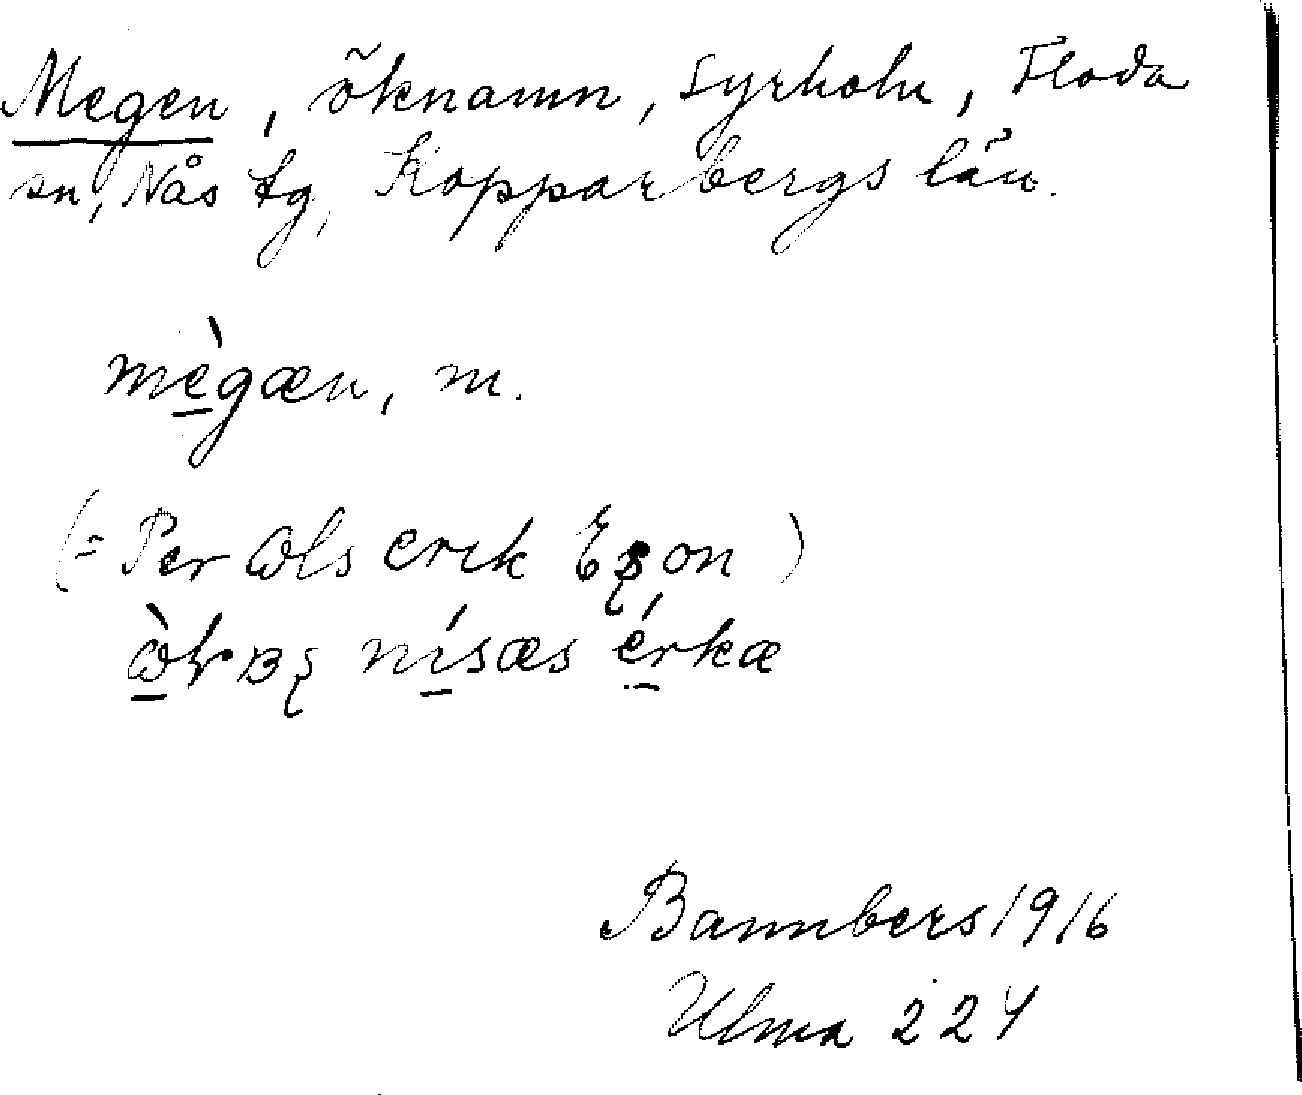 Megen, öknamn, Syrholn, Floda
sn, Nås tg, Kopparbergs län.
mègæn, m.
(= Per Ols erik Eson)
nísæs érkæ
Bannbers 1916
Ulma 224